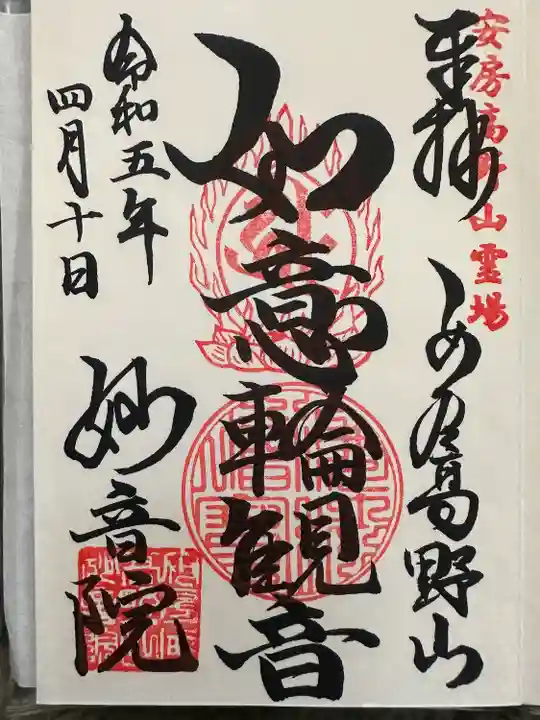 安房高野山霊場
奉拝
高野山
如意輪観音
妙音院
令和五年
四月十日